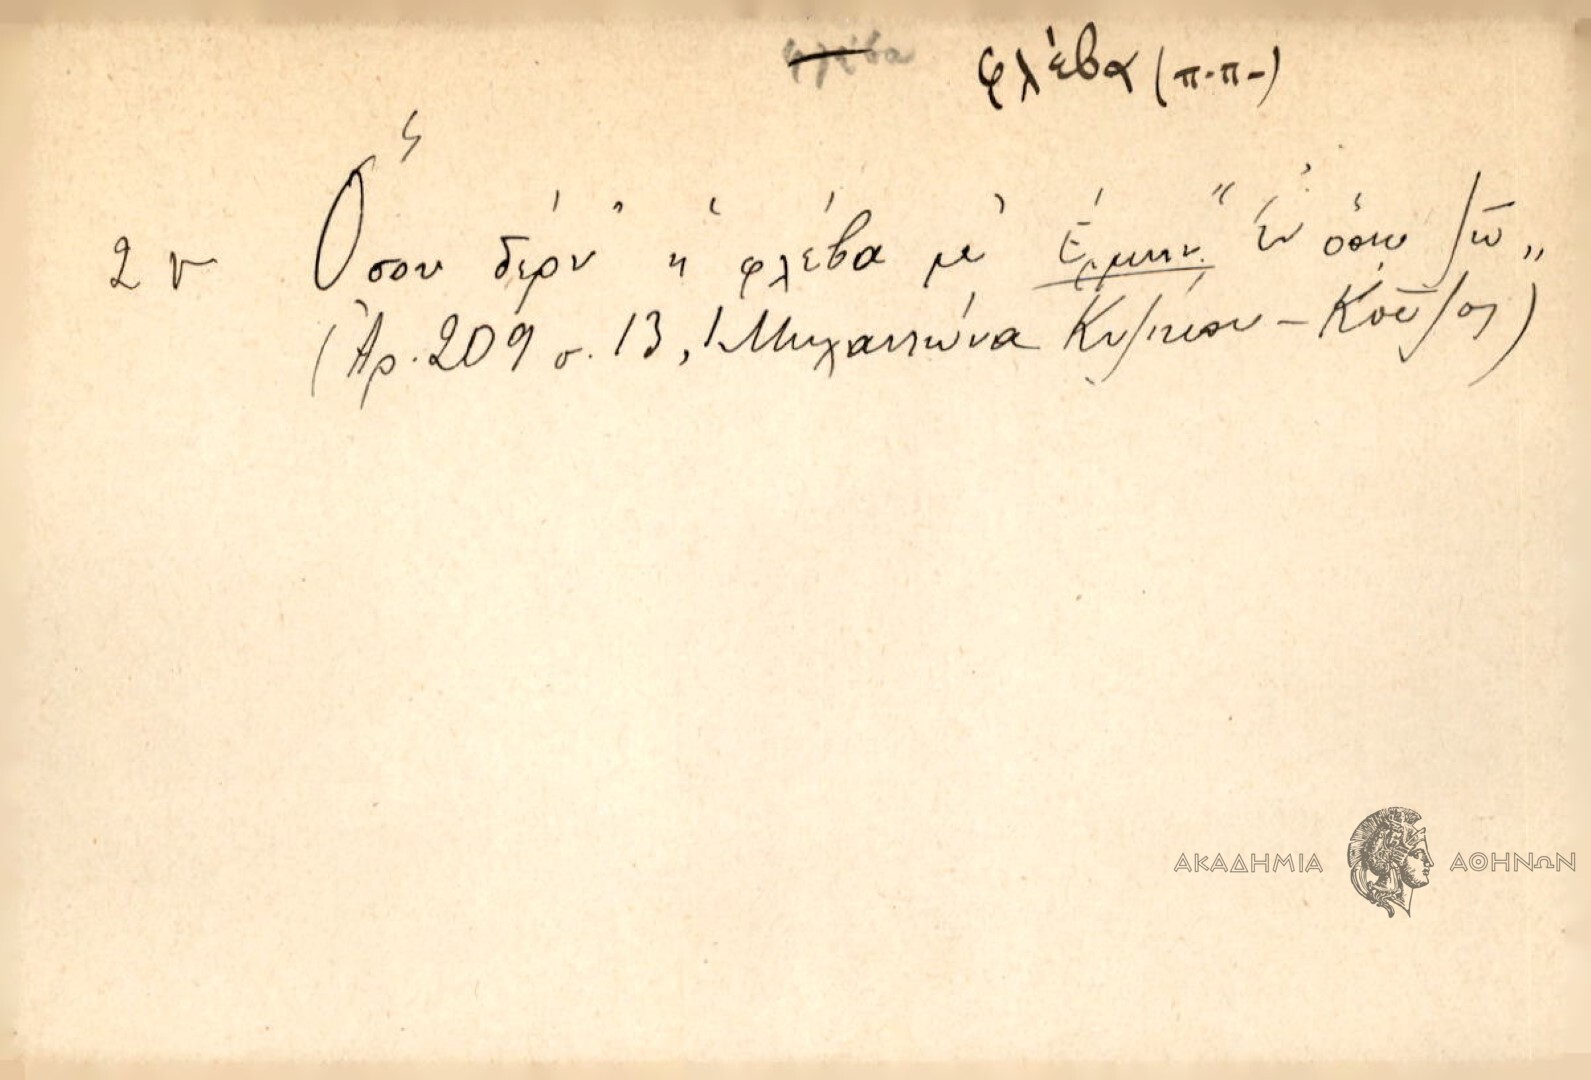 φλέβα φλέβα (π.π-)
2 ν Ὅσου δέρν' ἡ φλέβα μ' Ἑρμην. "Ἐν ὅσῳ ζῶ"
(Ἀρ. 209 σ. 13, Μηχανιώνα Κυζίκου -
ΑΚΑΔΗΜΙΑ ΑΘΗΝΩΝ